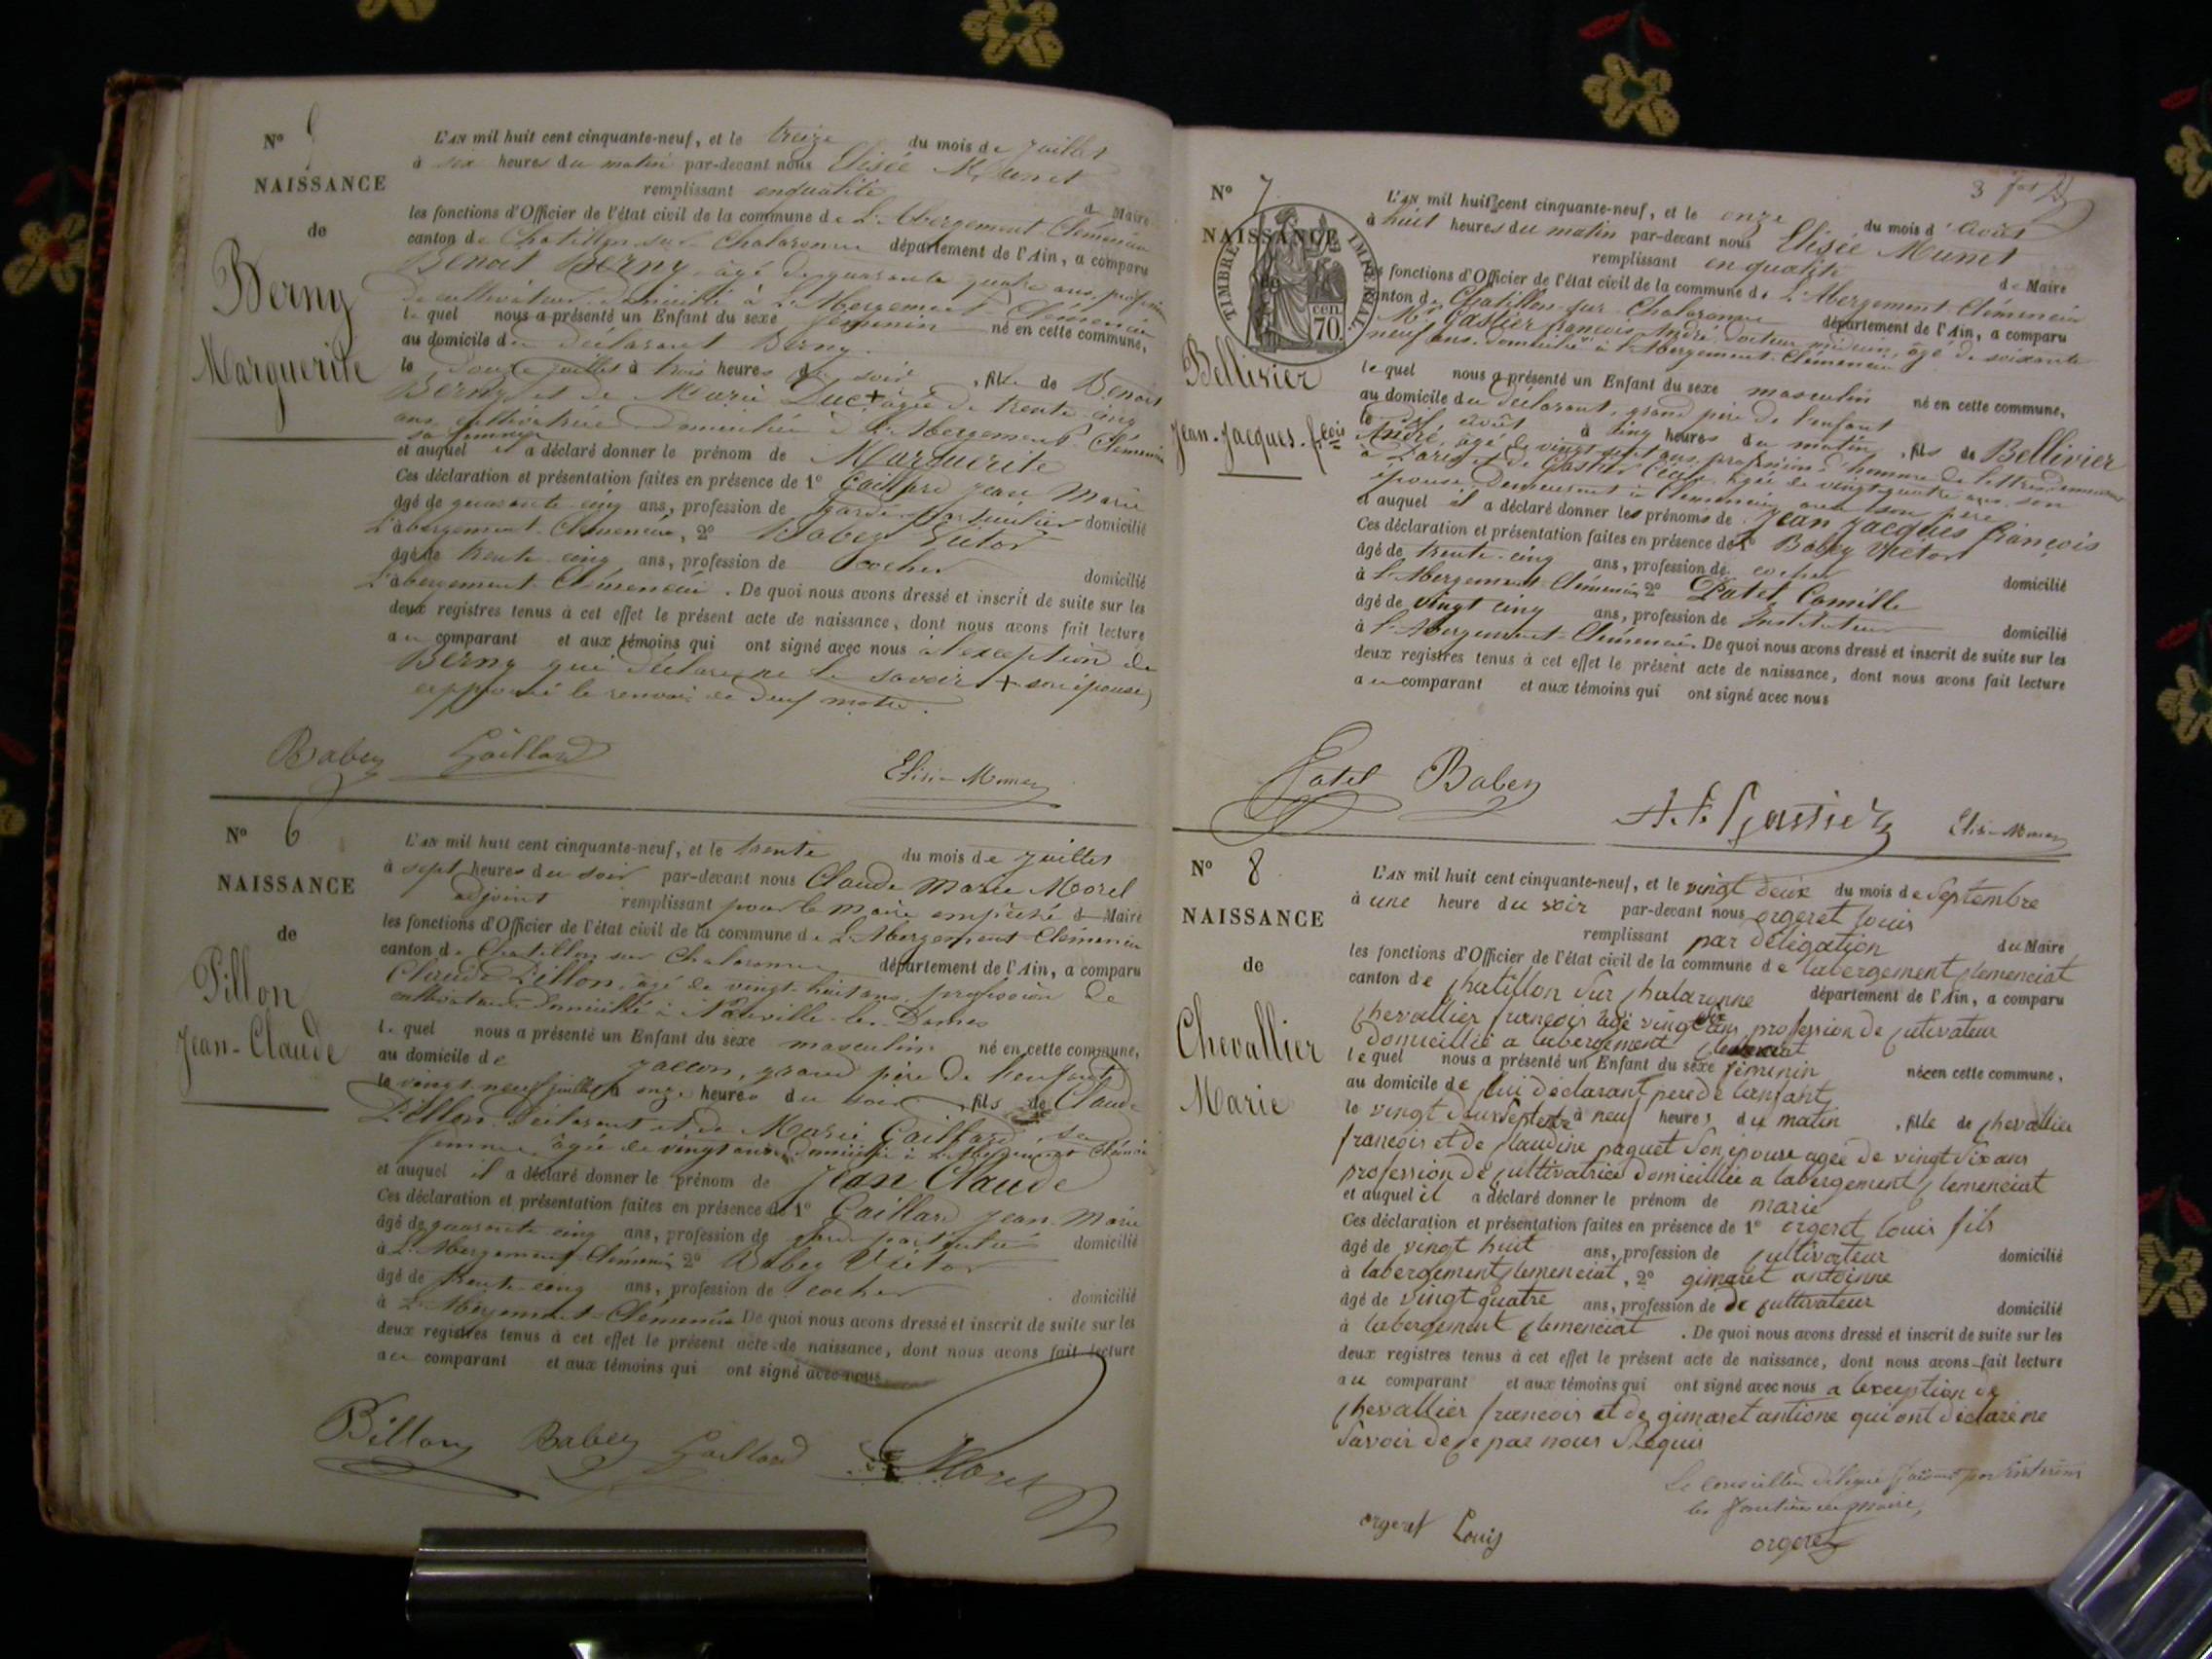 N° 5
NAISSANCE
de
Berny
Marguerite
L'AN mil huit cent cinquante-neuf, et le treize du mois de juillet
à six heures du matin par-devant nous Elisée Munet
remplissant en qualité de Maire
les fonctions d'Officier de l'état civil de la commune de L'Abergement-Clémencia
canton de Chatillon sur Chalaronne département de l'Ain, a comparu
Benoit Berny, âgé de quarante quatre ans, profession
de cultivateur domicilié à L'Abergement-Clémencia
lequel nous a présenté un Enfant du sexe féminin né en cette commune,
au domicile du déclarant Berny.
le douze juillet à trois heures du soir, fille de Benoit
Berny et de Marie Luc + âgée de trente cinq
ans cultivatrice domiciliée à L'Abergement Clémencia
sa femme
et auquel il a déclaré donner le prénom de Marguerite
Ces déclaration et présentation faites en présence de 1° Gaillard Jean Marie
âgé de quarante cinq ans, profession de garde particulier domicilié
L'abergement-Clémencia, 2° Babey Victor
âgé de trente-cinq ans, profession de cocher domicilié
L'abergement-Clémencia. De quoi nous avons dressé et inscrit de suite sur les
deux registres tenus à cet effet le présent acte de naissance, dont nous avons fait lecture
au comparant et aux témoins qui ont signé avec nous à l'exception de
Berny qui déclare ne le savoir + son épouse)
approuvé le renvoi de deux mots.
Babey Gaillard Elisée Munet
N° 6
NAISSANCE
de
Pillon
Jean-Claude
L'AN mil huit cent cinquante-neuf, et le trente du mois de juillet
à sept heures du soir par-devant nous Claude Marie Morel
adjoint remplissant pour le maire empêché de Maire
les fonctions d'Officier de l'état civil de la commune de L'Abergement-Clémencia
canton de Chatillon sur Chalaronne département de l'Ain, a comparu
Claude Pillon, âgé de vingt-huit ans, profession de
cultivateur domicilié à Neuville-les-Dames
lequel nous a présenté un Enfant du sexe masculin né en cette commune,
au domicile de grand père de l'enfant
le vingt-neuf juillet à onze heures du soir, fils de Claude
Pillon déclarant et de Marie Gaillard, sa
femme âgée de vingt ans domiciliée à L'Abergement Clémencia
et auquel il a déclaré donner le prénom de Jean Claude
Ces déclaration et présentation faites en présence de 1° Gaillard Jean-Marie
âgé de quarante cinq ans, profession de garde particulier domicilié
à L'Abergement-Clémencia 2° Babey Victor
âgé de trente-cinq ans, profession de cocher domicilié
à L'Abergement-Clémencia De quoi nous avons dressé et inscrit de suite sur les
deux registres tenus à cet effet le présent acte de naissance, dont nous avons fait lecture
au comparant et aux témoins qui ont signé avec nous
Billon Babey Gaillard Morel
3
N° 7
NAISSANCE
de
TIMBRE IMPÉRIAL
70 cen.
Bellivier
Jean-Jacques-fçois
L'AN mil huit cent cinquante-neuf, et le onze du mois d'Août
à huit heures du matin par-devant nous Elisée Munet
remplissant en qualité de Maire
les fonctions d'Officier de l'état civil de la commune de L'Abergement-Clémencia
canton de Chatillon-sur-Chalaronne département de l'Ain, a comparu
Mr Gastier françois André, docteur médecin, âgé de soixante
neuf ans, domicilié à l'Abergement-Clémencia
lequel nous a présenté un Enfant du sexe masculin né en cette commune,
au domicile du déclarant, grand père de l'enfant
le dix août à cinq heures du matin, fils de Bellivier
André, âgé de vingt sept ans, profession d'homme de lettres, demeurant
à Paris et de Gastier âgée de vingt quatre ans, son
épouse, demeurant à Clémencia avec son père
et auquel il a déclaré donner les prénoms de Jean Jacques François
Ces déclaration et présentation faites en présence de 1° Babey Victor
âgé de trente-cinq ans, profession de cocher domicilié
à L'Abergement-Clémencia 2° Patel Camille
âgé de vingt cinq ans, profession de Instituteur domicilié
à L'Abergement-Clémencia. De quoi nous avons dressé et inscrit de suite sur les
deux registres tenus à cet effet le présent acte de naissance, dont nous avons fait lecture
au comparant et aux témoins qui ont signé avec nous
Patel Babey A. F. Gastier Elisée Munet
N° 8
NAISSANCE
de
Chevallier
Marie
L'AN mil huit cent cinquante-neuf, et le vingt deux du mois de Septembre
à une heure du soir par-devant nous orgeret louis
remplissant par déligation du Maire
les fonctions d'Officier de l'état civil de la commune de labergement clemenciat
canton de chatillon sur chalaronne département de l'Ain, a comparu
chevallier francois agé vingt six ans profession de cutivateur
domicillié a labergement clemenciat
lequel nous a présenté un Enfant du sexe féminin née en cette commune,
au domicile de lui déclarant pere de lanfant
le vingt deux septembre à neuf heures du matin, fille de chevallier
francois et de claudine paquet son epouse agee de vingt six ans
profession de cultivatrice domicilliée a labergement clemenciat
et auquel il a déclaré donner le prénom de marie
Ces déclaration et présentation faites en présence de 1° orgeret louis fils
âgé de vingt huit ans, profession de cultivateur domicilié
à labergement clemenciat, 2° gimaret antoinne
âgé de vingt quatre ans, profession de de cultivateur domicilié
à labergement clemenciat. De quoi nous avons dressé et inscrit de suite sur les
deux registres tenus à cet effet le présent acte de naissance, dont nous avons fait lecture
au comparant et aux témoins qui ont signé avec nous a lexception de
chevallier francois et de gimaret antione qui ont déclaré ne
savoir de ce par nous Requis
Le conseiller délégué faisant par intérim
les fonctions de maire,
orgeret Louis orgeret